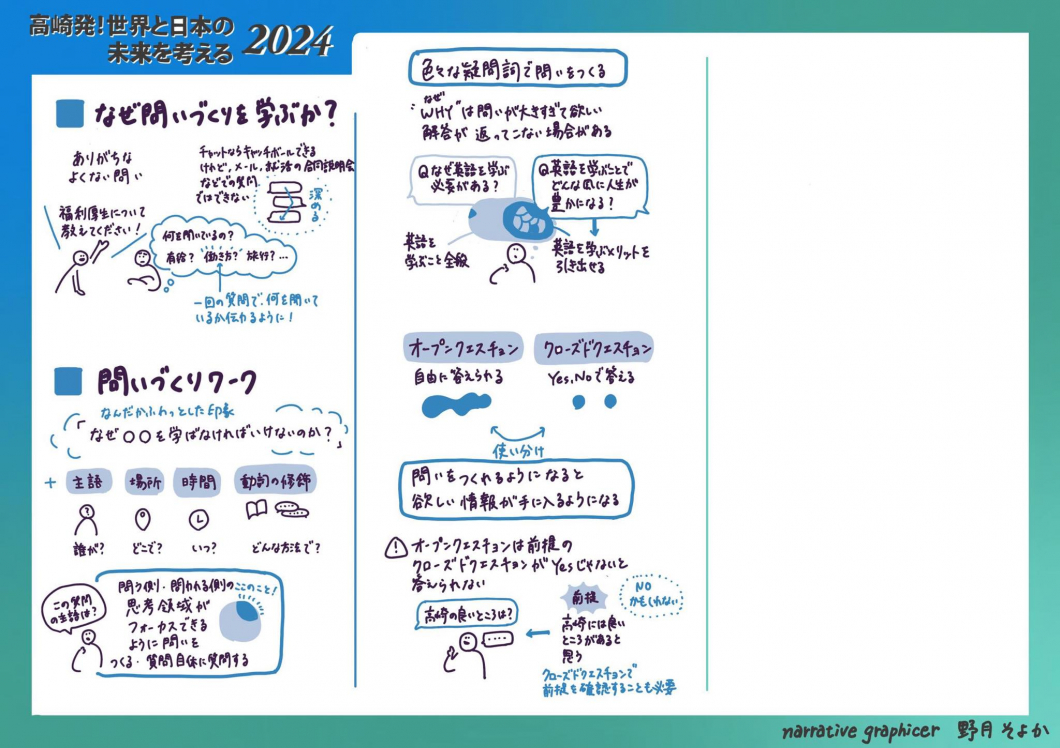 高崎発!世界と日本の
未来を考える
2024
なぜ問いづくりを学ぶか?
ありがちな
よくない問い
チャットならキャッチボールできる
けれど、メール、就活の合同説明会
などでの質問
ではできない
深める
福利厚生について
教えてください!
何を聞いているの?
有給? 働き方? 旅行?…
一回の質問で、何を聞いて
いるか伝わるように!
問いづくりワーク
なんだかふわっとした印象
「なぜ〇〇を学ばなければいけないのか?」
+ 主語 場所 時間 動詞の修飾
誰が? どこで? いつ? どんな方法で?
この質問
の主語は?
問う側・問われる側の
思考領域が
フォーカスできる
ように問いを
つくる・質問自体に質問する
ここのこと!
色々な疑問詞で問いをつくる
なぜ
"WHY"は問いが大きすぎて欲しい
解答が返ってこない場合がある
Q なぜ英語を学ぶ
必要がある?
Q 英語を学ぶことで
どんな風に人生が
豊かになる?
英語を
学ぶこと全般
英語を学ぶメリットを
引き出せる
オープンクエスチョン
自由に答えられる
クローズドクエスチョン
Yes,Noで答える
使い分け
問いをつくれるようになると
欲しい情報が手に入るようになる
! オープンクエスチョンは前提の
クローズドクエスチョンがYesじゃないと
答えられない
高崎の良いところは?
前提
高崎には良い
ところがあると
思う
NO
かもしれない
クローズドクエスチョンで
前提を確認することも必要
narrative graphicer 野月 そよか